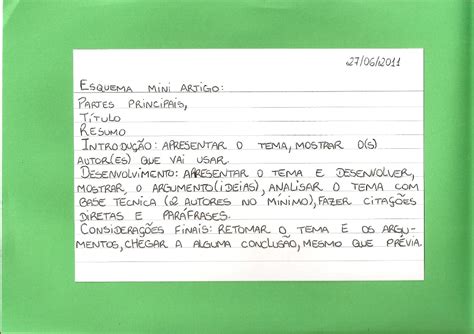 27/06/2011
ESQUEMA MINI ARTIGO:
PARTES PRINCIPAIS,
TÍTULO
RESUMO
INTRODUÇÃO: APRESENTAR O TEMA, MOSTRAR O(S)
AUTOR(ES) QUE VAI USAR.
DESENVOLVIMENTO: APRESENTAR O TEMA E DESENVOLVER,
MOSTRAR O ARGUMENTO(IDEIAS), ANALISAR O TEMA COM
BASE TÉCNICA (2 AUTORES NO MÍNIMO), FAZER CITAÇÕES
DIRETAS E PARÁFRASES.
CONSIDERAÇÕES FINAIS: RETOMAR O TEMA E OS ARGU-
MENTOS, CHEGAR A ALGUMA CONCLUSÃO, MESMO QUE PRÉVIA.